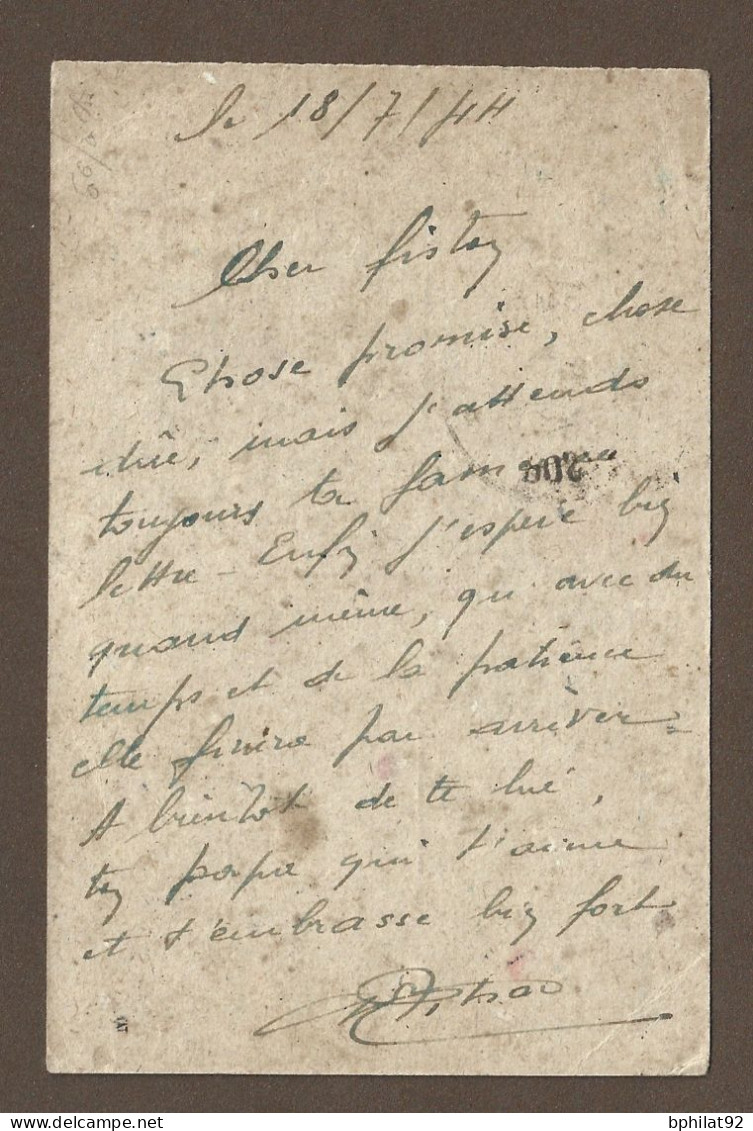 le 18/7/44
Cher fiston
Chose promise, chose
dûe, mais j'attends
toujours ta fameuse
lettre - Enfin j'espère bien
quand même, qu'avec du
temps et de la patience
elle finira par arriver =
A bientôt de te lire,
ton papa qui t'aime
et t'embrasse bien fort
208
bphilat92